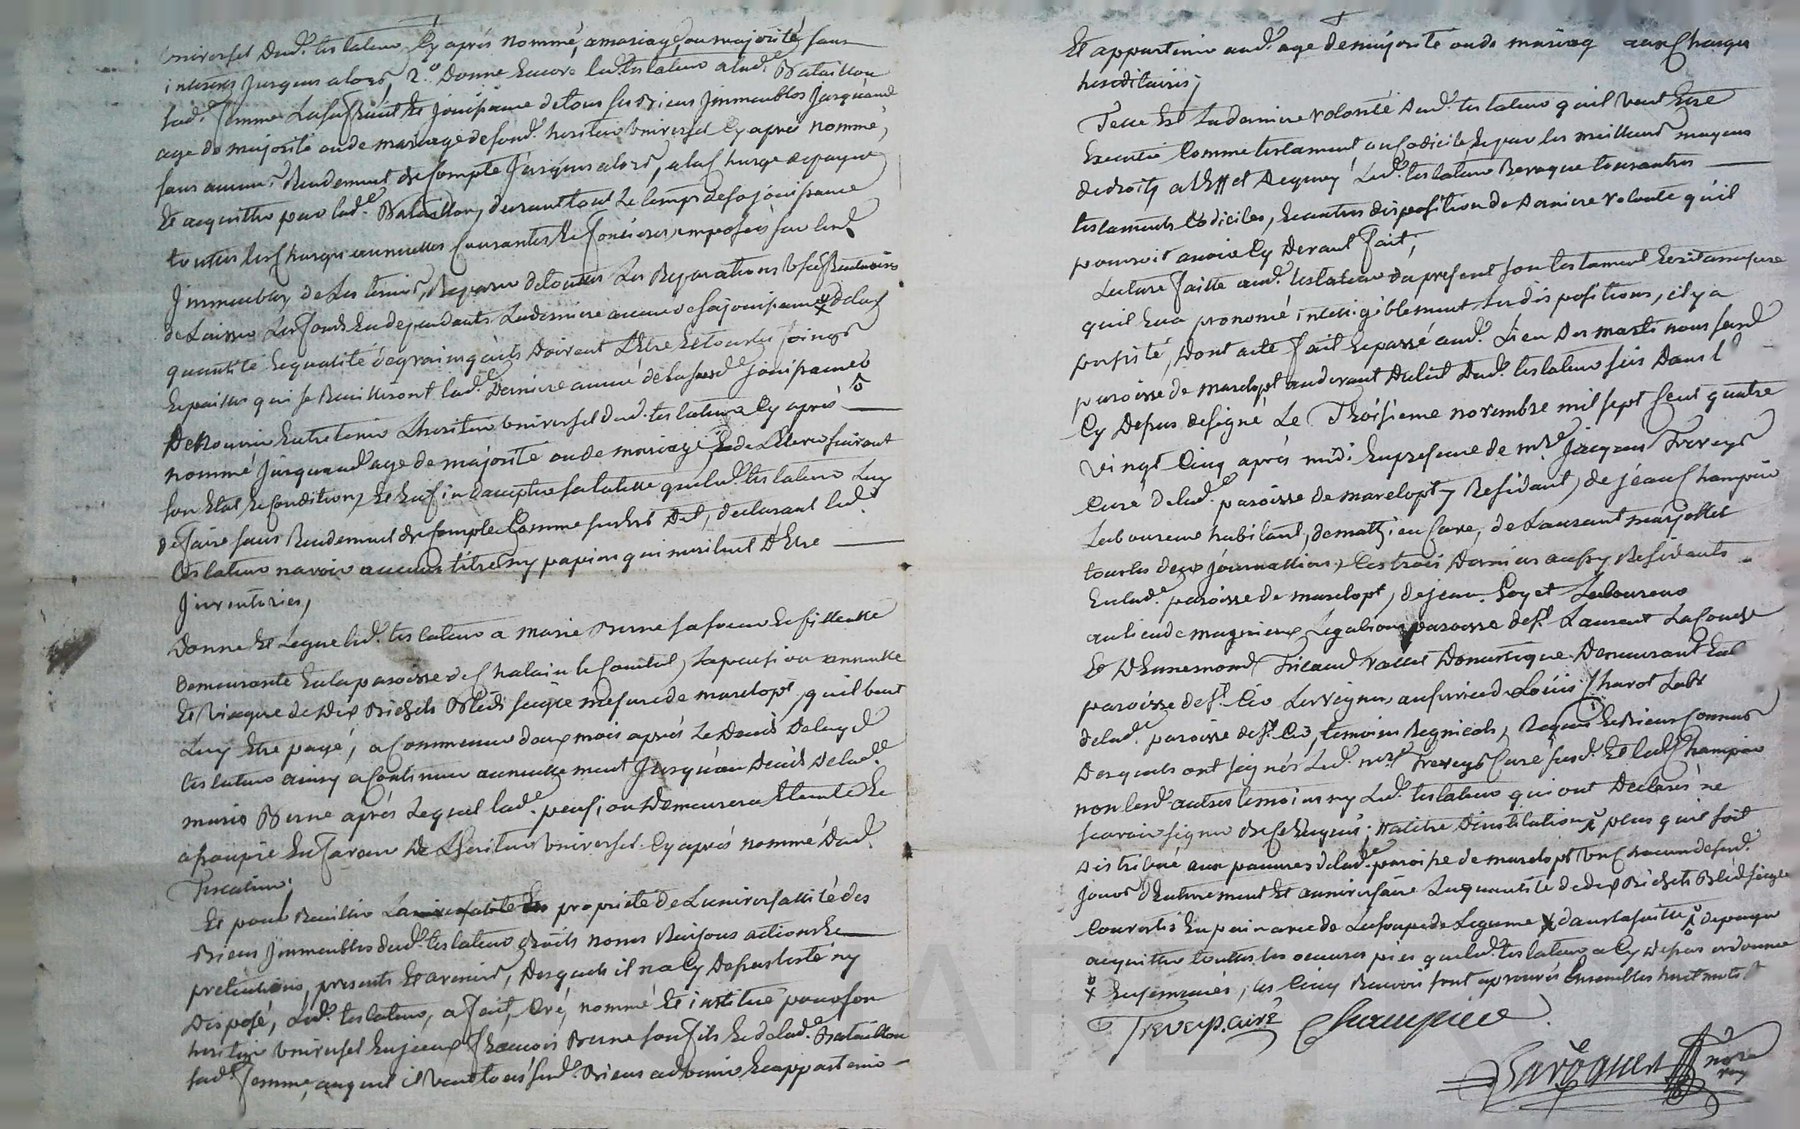 universel dud. testateur, cy après nommé, a mariage, ou majorité sans
interets jusques alors, 2.o Donne Encore led. testateur a lad.e Bataillon
sad.e femme L'usufruit Et jouissance de tous ses Biens Jmmeubles jusqu'aud.
age de majorité ou de mariage de sond. heritier universel cy après nommé,
sans aucun Rendement de Compte jusques alors, a la Charge de payer
Et acquitter par lad.e Bataillon, durant tout Le temps de sa jouissance
toutes les Charges annuelles Courantes Et foncieres imposées sur lesd.
Jmmeubles, de Les tenir, Reparer de toutes Les Reparations usufructuaires
de Laisser Les fonds En dependants La derniere année de sa jouissance de la
quantité Et qualité de grain qu'ils doivent L'Etre Et tous les foings
Et pailles qui se Recuilliront lad.e Derniere année de la susd.e jouissance
De Nourrir Entretenir L'heritier universel dud. testateur cy après
nommé jusqu'aud. age de majorité ou de mariage Et de L'Elever suivant
son Etat Et Condition, Et Enfin d'accepter sa tutelle que led. testateur Luy
deffere sans Rendement de Compte Comme susest Dit, declarant led.
testateur n'avoir aucuns titres ny papiers qui meritent D'Etre
Jnventoriés,
Donne Et Legue led. testateur a Marie Berne sa soeur Et filleulle
Demeurante En la paroisse de Chalain le Comtal, la pension annuelle
Et Viagere de dix Bichets Bled seigle mesure de marclopt, qu'il veut
Luy Etre payé, a Commencer deux mois après Le Decès Deluyd.
testateur ainsy a Continuer annuellement Jusqu'au Decès De lad.e
marie Berne après Lequel lad.e pension Demeurera Eteinte Et
assoupie En faveur De L'heritier universel Cy après nommé Dud.
Testateur;
Et pour Recuillir La propriete de L'universallité des
Biens Jmmeubles dud. testateur droits noms Raisons actions Et
pretentions, presents Et avenirs, Desquels il n'a Cy Depuis testé ny
Disposé, Led. testateur, a fait, Créé, nommé Et institué pour son
heritier universel Enjeux François Berne son fils Et de lad.e Bataillon
sad.e femme, auquel il veut tous sesd. Biens advenir Et appartenir
Et appartenir aud. age de majorité ou de mariage aux Charges
hereditaires;
Telle Est La derniere volonté dud. testateur qu'il veut Etre
Executée Comme testament ou Codicile Et par les meilleurs moyens
de droits a L'Eff.et Dequoy Led. testateur Revoque tous autres
testaments Codiciles, Et autres disposition de Derniere volonté qu'il
pourroit avoir Cy Devant fait;
Lecture faitte aud. testateur du present son testament Ecrit a mesure
qu'il En a prononcé intelligiblement Les dispositions, il y a
persisté, Dont acte fait Et passé aud. Lieu Des massts nous susd.
paroisse de marclopt au devant Du lit Dud. testateur sus Dans l
Cy Depus designé Le Troisieme novembre mil sept Cent quatre
vingt Cinq après midi En presence de m.re Jacques Treveys
Curé de lad.e paroisse de marclopt y Residant, de jean Champier
Laboureur habitant, de mathieu Cave, de Laurant marjollet
tous les deux journalliers, Ces trois Derniers aussy Residants
En lad.e paroisse de marclopt, de jean Goyet Laboureur
au lieu de magnieux Legabion paroisse de S.t Laurent La Conche
Et D'Ennemond Tricaud vallet Domestique Demeurant En la
paroisse de S.t Cir Les vignes au service de Louis Charot Lab.r
de lad.e paroisse de S.t Cir, temoins Regnicols, Requis Et Bien Connus
Desquels ont signés Led. m.re Treveys Curé susd. Et led. Champier
non lesd. autres temoins ny Led. testateur qui ont Declarés ne
scavoir signer de ce Enquis; plus qu'il soit
distribué aux pauvres de lad.e paroisse de marclopt un Chacun desd.
jours D'Enterrement Et anniversaire La quantité de dix Bichets Bled seigle
Convertis En pain avec de La soupe de Legume dans la suitte de payer
acquitter touttes les oeuvres pies que led. testateur a Cy depus ordonnée
Enjoncnées, les Cinq Renvois sont aprouvés Ensembles huit mots
Treveys Curé Champier
Laroquett
no.re
roy